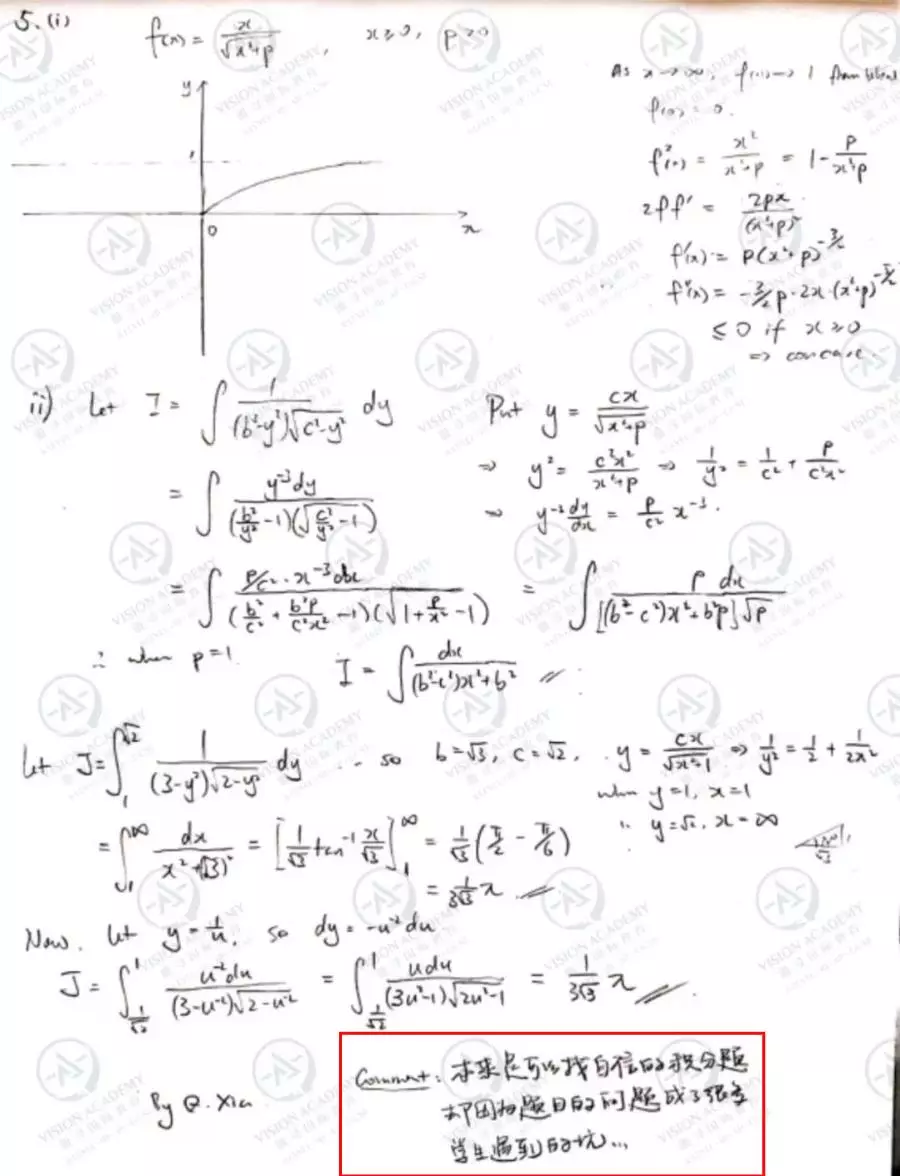 5. (i) f(x) = x/√(x²+p), x≥0, p>0
y
1
0
x
As x→∞, f(x)→1 from below
f(0) = 0.
f²(x) = x²/(x²+p) = 1 - p/(x²+p)
2ff' = 2px/(x²+p)²
f'(x) = p(x²+p)^(-3/2)
f''(x) = -3/2 p·2x·(x²+p)^(-5/2)
≤ 0 if x≥0
⇒ concave.
ii) Let I = ∫ 1/((b²-y²)√(c²-y²)) dy
Put y = cx/√(x²+p)
⇒ y² = c²x²/(x²+p) ⇒ 1/y² = 1/c² + p/(c²x²)
⇒ y⁻³ dy/dx = p/c² x⁻³.
= ∫ y⁻³dy/((b²/y²-1)(√(c²/y²-1)))
= ∫ p/c²·x⁻³dx/((b²/c² + b²p/(c²x²) -1)(√(1+p/x²-1))) = ∫ p dx/([(b²-c²)x²+b²p]√p)
∴ when p=1. I = ∫ dx/((b²-c²)x²+b²)
Let J = ∫₁^√2 1/((3-y²)√(2-y²)) dy ... so b=√3, c=√2, y = cx/√(x²+1) ⇒ 1/y² = 1/2 + 1/(2x²)
when y=1, x=1
y=√2, x=∞
= ∫₁^∞ dx/(x²+(√3)²) = [1/√3 tan⁻¹ x/√3]₁^∞ = 1/√3 (π/2 - π/6)
= 1/(3√3) π
Now. Let y = 1/u, so dy = -u⁻²du
J = ∫_(1/√2)^1 u⁻²du/((3-u⁻²)√(2-u⁻²)) = ∫_(1/√2)^1 udu/((3u²-1)√(2u²-1)) = 1/(3√3) π
By Q. Xia
Comment: 本来是可以找自信的积分题
却因为题目的问题成了很多
学生遇到的坑...
VISION ACADEMY